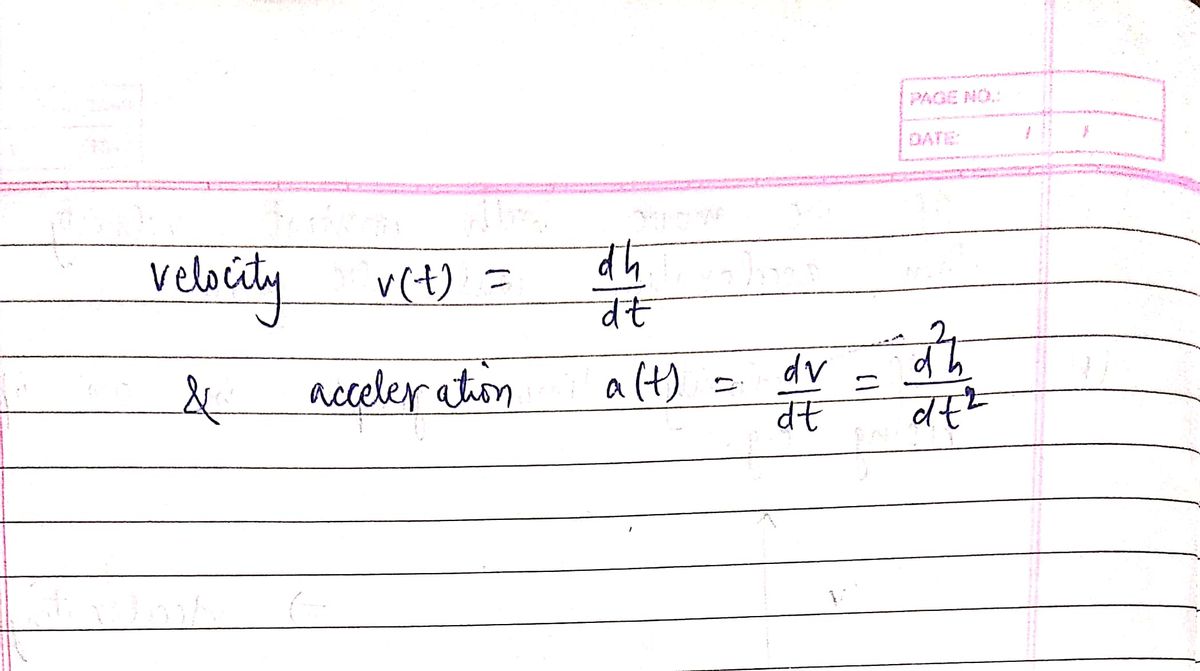 PAGE NO.:
DATE: / /
velocity v(t) = dh/dt
& acceleration a(t) = dv/dt = d²h/dt²